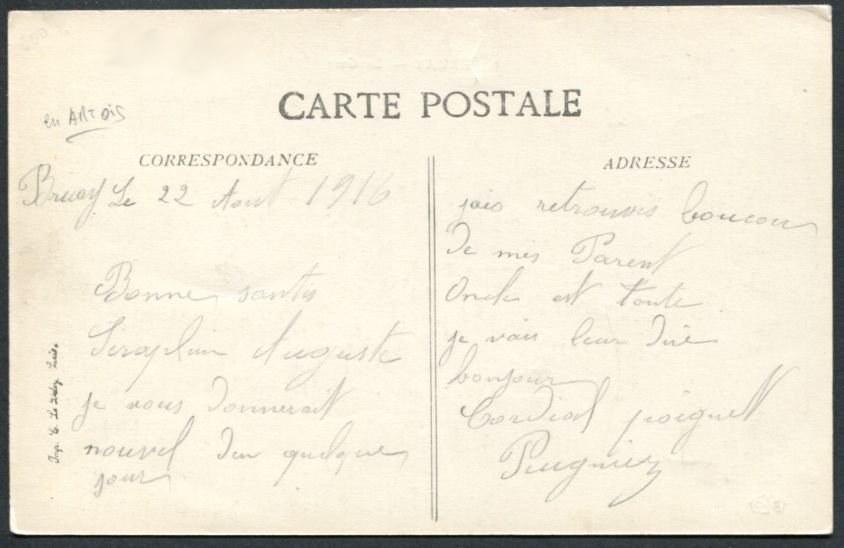 CARTE POSTALE
en ARTOIS
CORRESPONDANCE
Bruay Le 22 Aout 1916
Bonne santis
Seraphin Auguste
je vous donnerait
nouvel dan quelque
jour
ADRESSE
jais retrouvis boucou
De mis Parent
Oncle est tante
je vais leur dire
bonjour
Cordial poignet
Pugniez